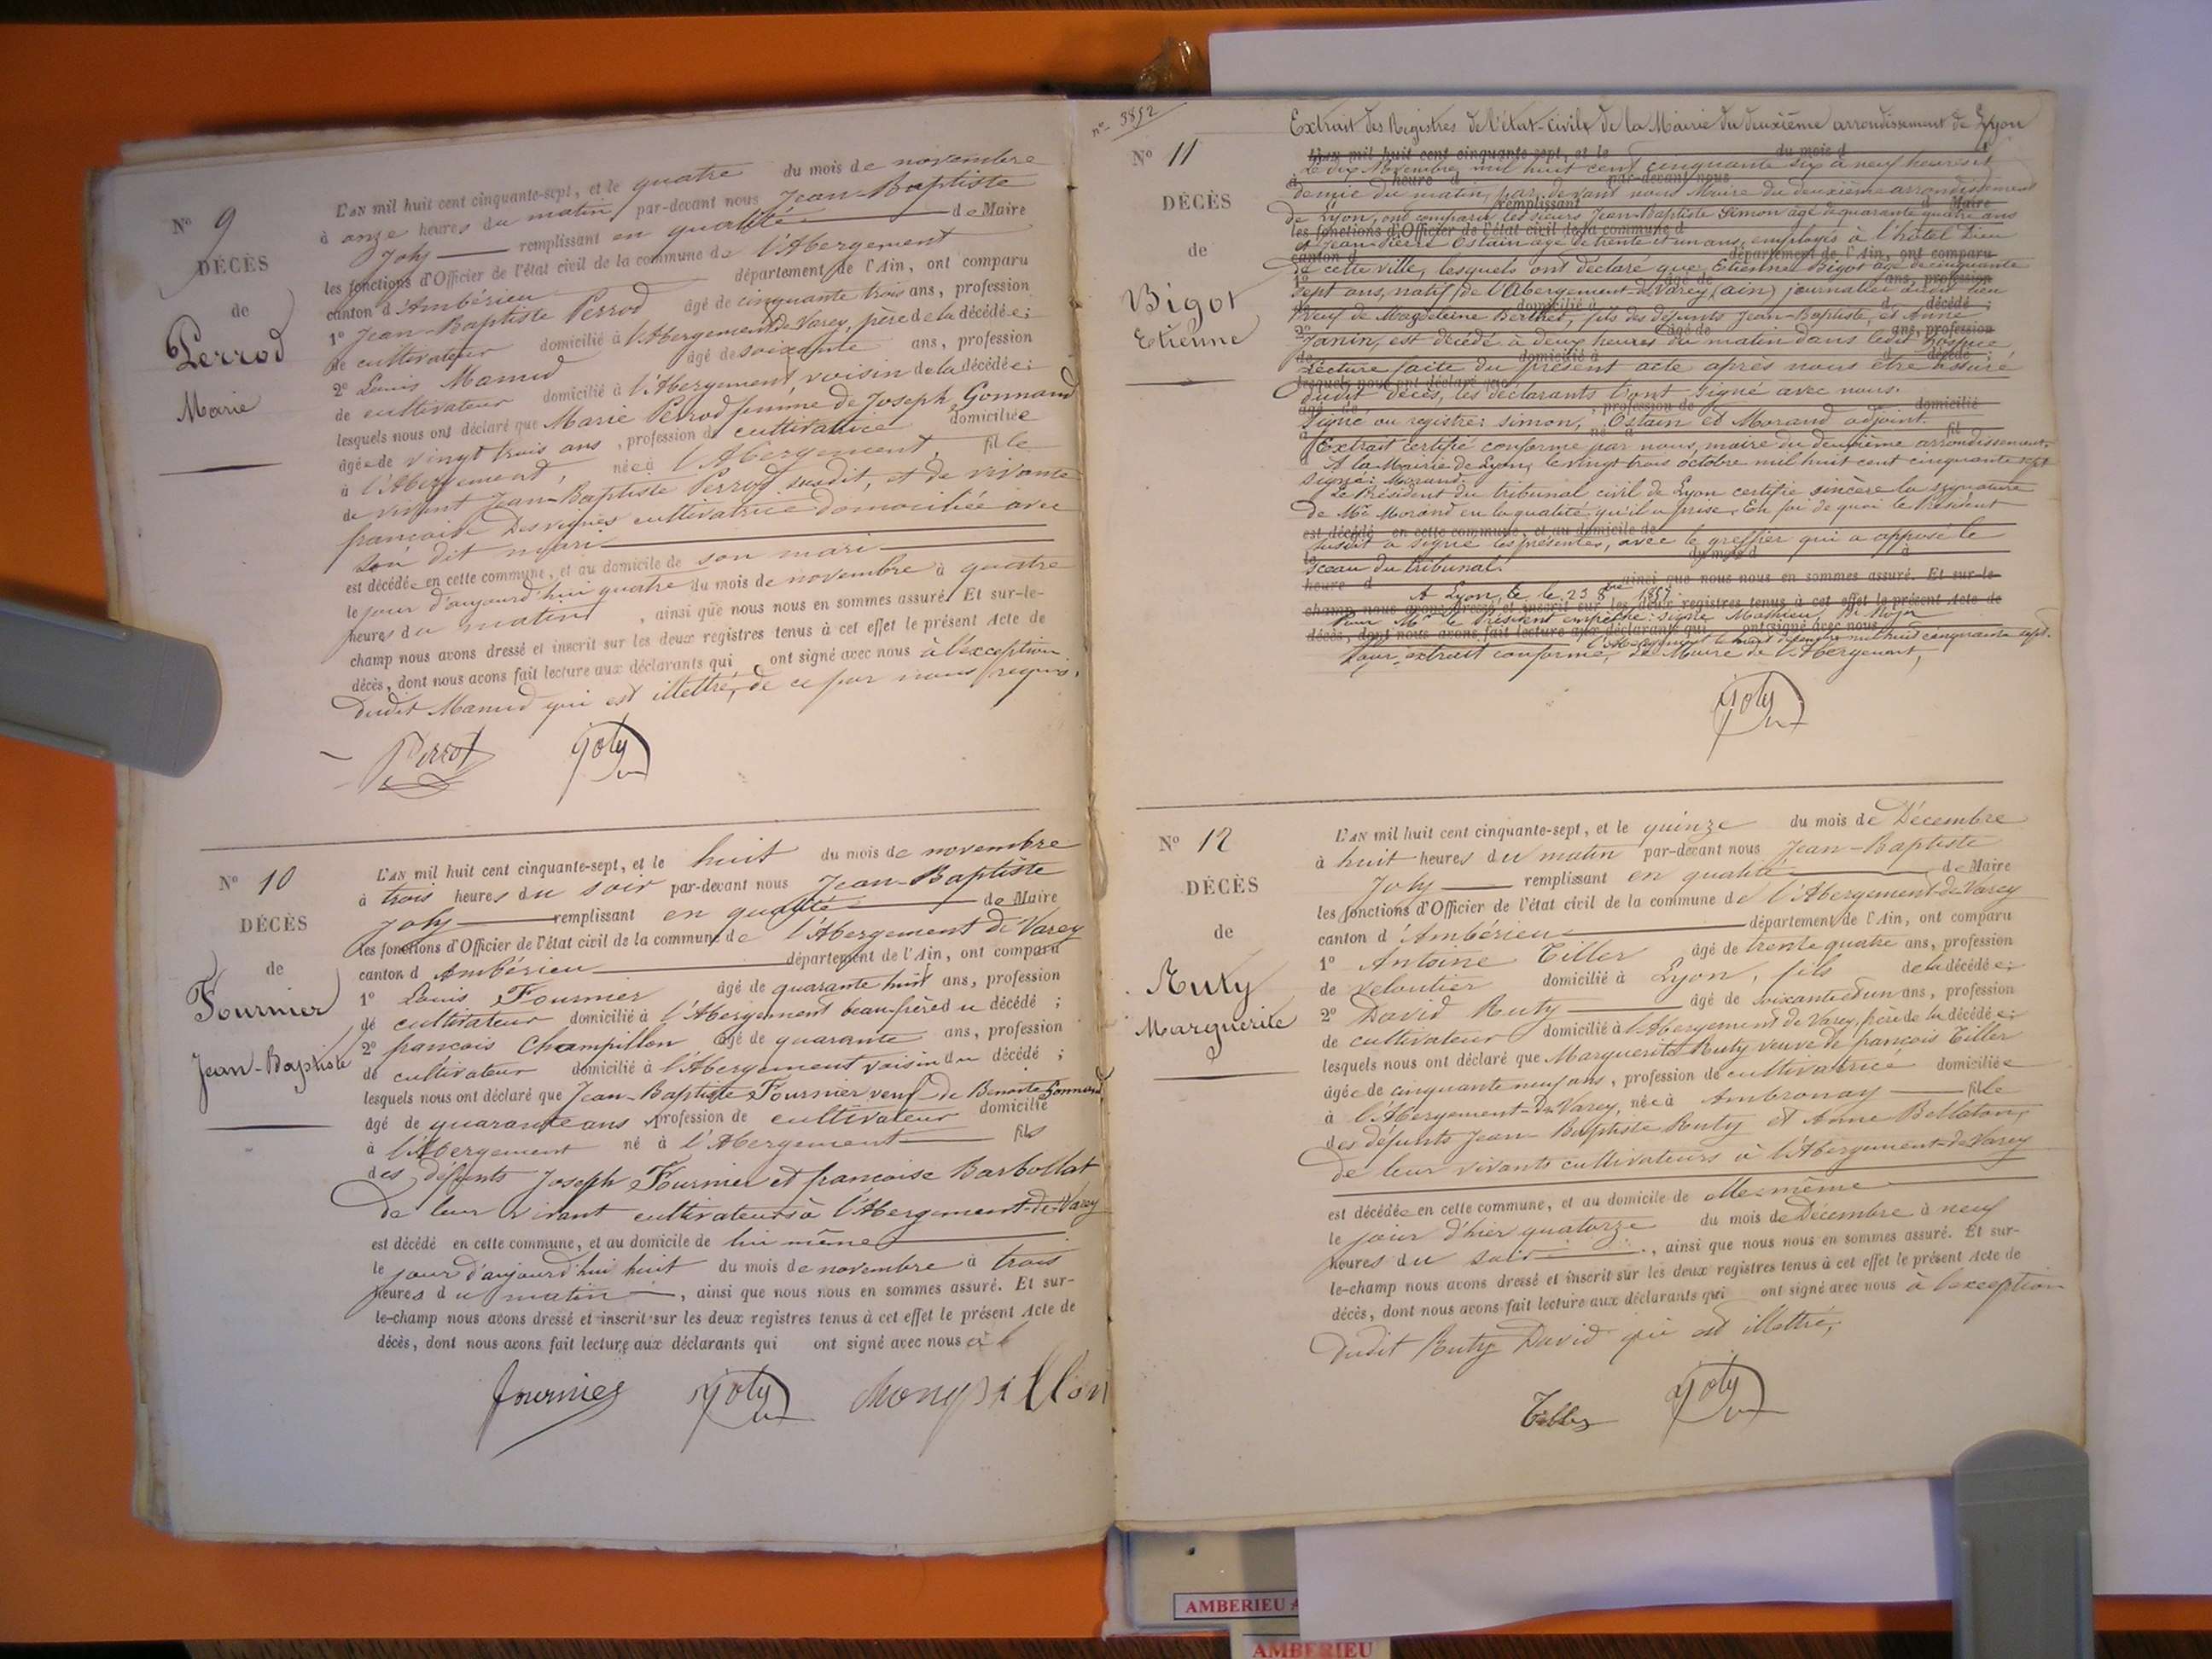 No 9
DÉCÈS
de
Perrod
Marie
L'AN mil huit cent cinquante-sept, et le quatre du mois de novembre
à onze heures du matin par-devant nous Jean-Baptiste
Joly remplissant en qualité de Maire
les fonctions d'Officier de l'état civil de la commune de l'Abergement
canton d'Ambérieu département de l'Ain, ont comparu
1o Jean-Baptiste Perrod âgé de cinquante trois ans, profession
de cultivateur domicilié à l'Abergement de Varey, père de la décédée;
2o Louis Mamud âgé de soixante ans, profession
de cultivateur domicilié à l'Abergement, voisin de la décédée;
lesquels nous ont déclaré que Marie Perrod femme de Joseph Gonnand
âgée de vingt trois ans, profession de cultivatrice domiciliée
à l'Abergement, née à l'Abergement, fille
de vivant Jean-Baptiste Perrod susdit, et de vivante
francoise Desvignes cultivatrice domiciliée avec
son dit mari
est décédée en cette commune, et au domicile de son mari
le jour d'aujourd'hui quatre du mois de novembre à quatre
heures du matin, ainsi que nous nous en sommes assuré. Et sur-le-
champ nous avons dressé et inscrit sur les deux registres tenus à cet effet le présent Acte de
décès, dont nous avons fait lecture aux déclarants qui ont signé avec nous à l'exception
dudit Mamud qui est illettré, de ce par nous requis.
Perrot Joly
No 10
DÉCÈS
de
Fournier
Jean-Baptiste
L'AN mil huit cent cinquante-sept, et le huit du mois de novembre
à trois heures du soir par-devant nous Jean-Baptiste
Joly remplissant en qualité de Maire
les fonctions d'Officier de l'état civil de la commune de l'Abergement de Varey
canton d'Ambérieu département de l'Ain, ont comparu
1o Louis Fournier âgé de quarante huit ans, profession
de cultivateur domicilié à l'Abergement beau-frère du décédé;
2o francois Champillon âgé de quarante ans, profession
de cultivateur domicilié à l'Abergement voisin du décédé;
lesquels nous ont déclaré que Jean-Baptiste Fournier veuf de Benoite Gonnand
âgé de quarante ans, profession de cultivateur domicilié
à l'Abergement né à l'Abergement fils
des défunts Joseph Fournier et francoise Barbollat
de leur vivant cultivateurs à l'Abergement-de-Varey
est décédé en cette commune, et au domicile de lui même
le jour d'aujourd'hui huit du mois de novembre à trois
heures du matin, ainsi que nous nous en sommes assuré. Et sur-
le-champ nous avons dressé et inscrit sur les deux registres tenus à cet effet le présent Acte de
décès, dont nous avons fait lecture aux déclarants qui ont signé avec nous
fournier Joly
no 3852
No 11
DÉCÈS
de
Bigot
Etienne
Extrait des Registres de l'état-civil de la Mairie du deuxième arrondissement de Lyon
Le dix Novembre mil huit cent cinquante six à neuf heures et
demie du matin, par-devant nous Maire du deuxième arrondissement
de Lyon, ont comparu les sieurs Jean-Baptiste Simon âgé de quarante quatre ans
et Jean-Pierre Ostain âgé de trente et un ans, employés à l'hôtel Dieu
de cette ville, lesquels ont déclaré que Etienne Bigot âgé de cinquante
sept ans, natif de l'Abergement-de-Varey (ain) journalier
veuf de Magdeleine Berthet, fils des défunts Jean-Baptiste, et Anne
Janin, est décédé à deux heures du matin dans ledit hospice
Lecture faite du présent acte après nous être assuré
dudit décès, les déclarants l'ont signé avec nous.
Signé au registre: simon, Ostain et Morand adjoint.
Extrait certifié conforme par nous, maire du deuxième arrondissement.
A la Mairie de Lyon, le vingt trois octobre mil huit cent cinquante sept
signé: Morand.
Le Président du tribunal civil de Lyon certifie sincère la signature
de Mr Morand en la qualité qu'il a prise. En foi de quoi le Président
susdit a signé les présentes, avec le greffier qui a apposé le
sceau du tribunal.
A Lyon, le 23 8bre 1857.
Pour Mr le Président empêché: signé Mathieu,
Pour extrait conforme, Le Maire de l'Abergement,
Joly
No 12
DÉCÈS
de
Ruty
Marguerite
L'AN mil huit cent cinquante-sept, et le quinze du mois de Décembre
à huit heures du matin par-devant nous Jean-Baptiste
Joly remplissant en qualité de Maire
les fonctions d'Officier de l'état civil de la commune de l'Abergement-de-Varey
canton d'Ambérieu département de l'Ain, ont comparu
1o Antoine Tiller âgé de trente quatre ans, profession
de veloutier domicilié à Lyon, fils de la décédée;
2o David Ruty âgé de soixante et un ans, profession
de cultivateur domicilié à l'Abergement de Varey, frère de la décédée;
lesquels nous ont déclaré que Marguerite Ruty veuve de francois Tiller
âgée de cinquante neuf ans, profession de cultivatrice domiciliée
à l'Abergement-de-Varey, née à Ambronay fille
des défunts Jean-Baptiste Ruty et Anne Bellaton,
de leur vivants cultivateurs à l'Abergement-de-Varey
est décédée en cette commune, et au domicile de elle-même
le jour d'hier quatorze du mois de Décembre à neuf
heures du soir, ainsi que nous nous en sommes assuré. Et sur-
le-champ nous avons dressé et inscrit sur les deux registres tenus à cet effet le présent Acte de
décès, dont nous avons fait lecture aux déclarants qui ont signé avec nous à l'exception
dudit Ruty David qui est illettré,
Tiller Joly
AMBERIEU
AMBERIEU